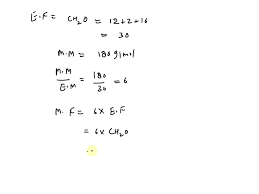 E.F = CH₂O = 12+2+16
= 30
M.M = 180 g/mol
M.M/E.M = 180/30 = 6
M.F = 6 x E.F
= 6 x CH₂O